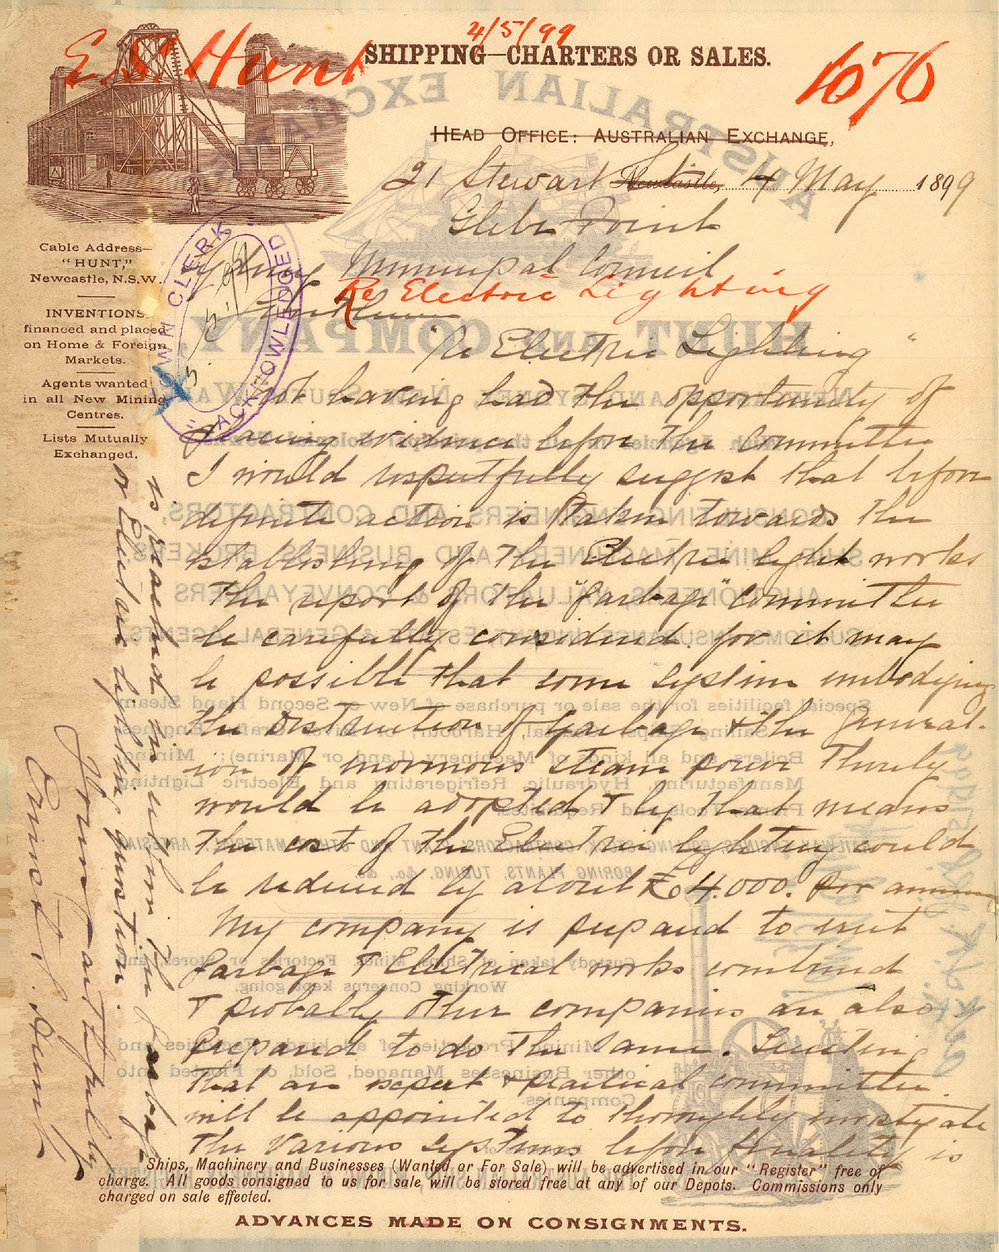 4/5/99
E. S. Hunt
1676
SHIPPING—CHARTERS OR SALES.
HEAD OFFICE: AUSTRALIAN EXCHANGE,
21 Stewart St Newcastle, 4 May 1899
Glebe Point
Cable Address—
"HUNT,"
Newcastle, N.S.W.
INVENTIONS
financed and placed
on Home & Foreign
Markets.
Agents wanted
in all New Mining
Centres.
Lists Mutually
Exchanged.
TOWN CLERK
5-5-99
"ACKNOWLEDGED"
Sydney Municipal Council
Re Electric Lighting
Gentlemen
"Re Electric Lighting"
Not having had the opportunity of
giving evidence before the Committee
I would respectfully suggest that before
definite action is taken towards the
establishing of the Electric Light works
the report of the "Garbage" Committee
be carefully considered. for it may
be possible that some system embodying
the Destruction of garbage & the generat-
ion of enormous steam power thereby
would be adopted & by that means
the cost of the Electric lighting could
be reduced by about £4.000. per annum
My company is prepared to erect
Garbage & Electrical works combined
& probably other companies are also
prepared to do the same. Trusting
that an expert & practical committee
will be appointed to thoroughly investigate
the various systems before finality is
is reached in either the Garbage
or Electric lighting question.
Yours faithfully
Ernest S. Hunt
Ships, Machinery and Businesses (Wanted or For Sale) will be advertised in our "Register" free of
charge. All goods consigned to us for sale will be stored free at any of our Depots. Commissions only
charged on sale effected.
ADVANCES MADE ON CONSIGNMENTS.